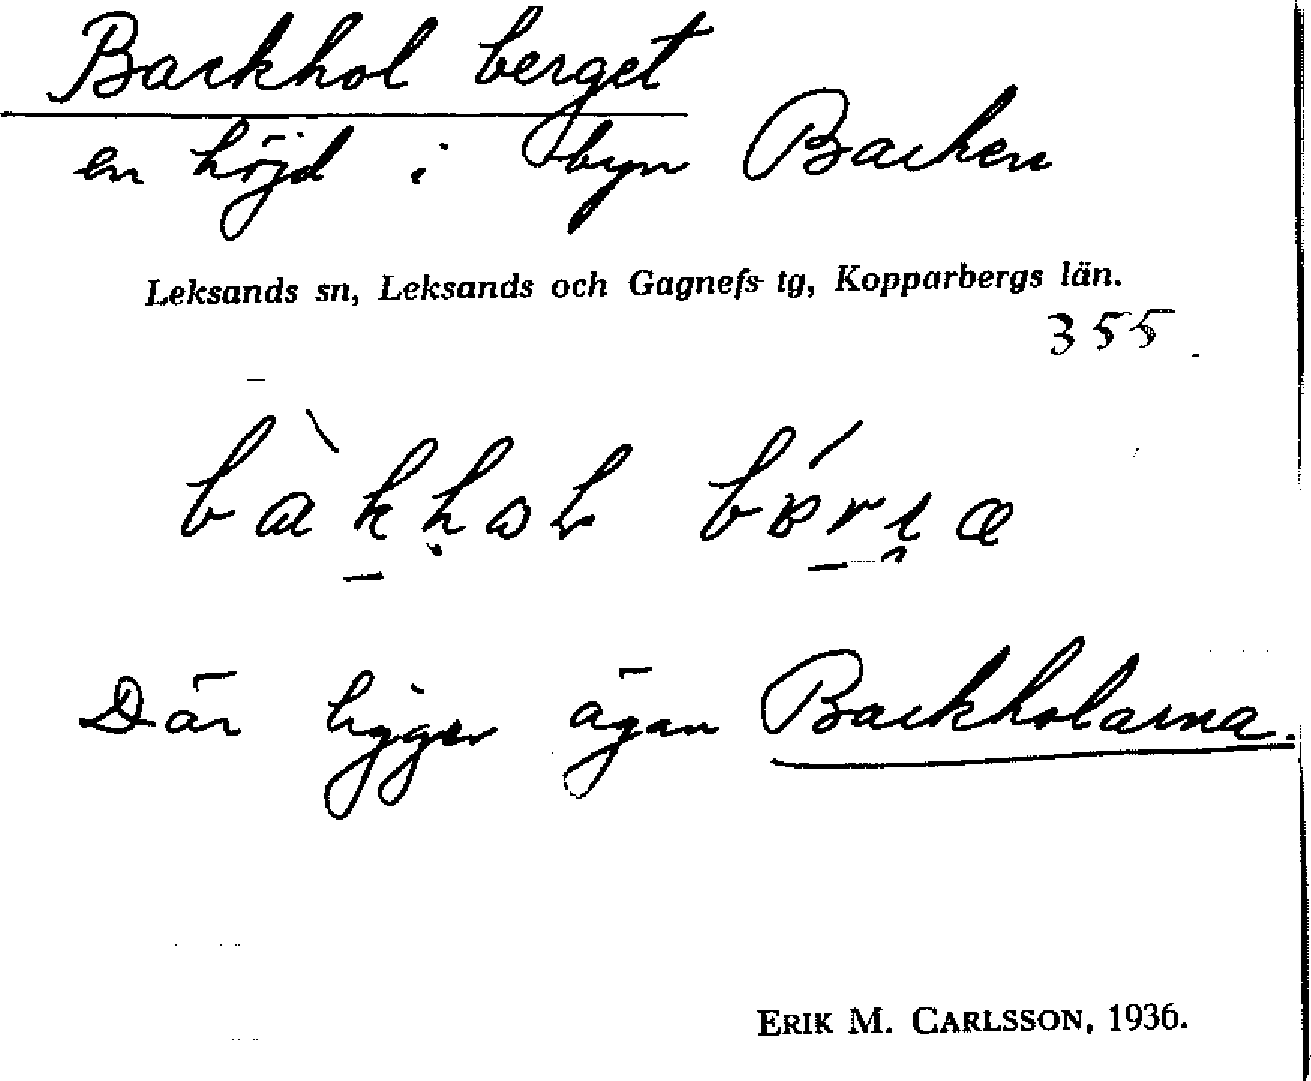 Backhol berget
en höjd i byn Backen
Leksands sn, Leksands och Gagnefs tg, Kopparbergs län.
355
Där ligger ägan Backholarna.
ERIK M. CARLSSON, 1936.